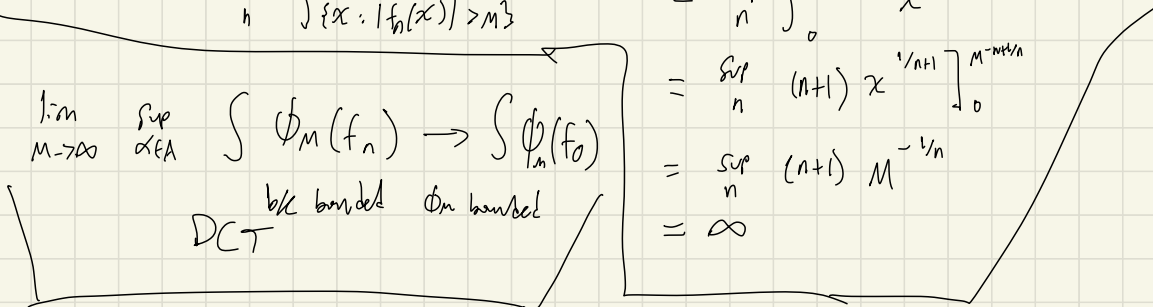 n ∫{x : |fₙ(x)| > M}
lim M→∞ sup α∈A ∫ ϕ_M(fₙ) → ∫ϕ_M(f₀)
b/c bounded ϕ_M bounded
DCT
= n ∫₀ x
= sup n (n+1) x^{1/n+1} ]₀^{M^{-n+1/n}}
= sup n (n+1) M^{-1/n}
= ∞